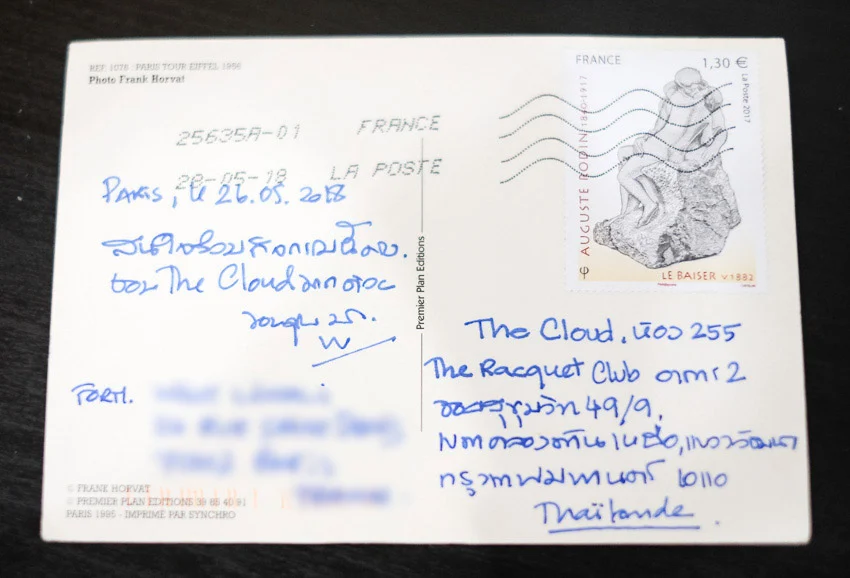 REF. 1078 PARIS TOUR EIFFEL 1996
Photo Frank Horvat
25635A-01 FRANCE
28-05-18 LA POSTE
PARIS, le 26.05.2018
สนใจร่วมกิจกรรมนี้
ของ The Cloud มากค่ะ
ขอบคุณ
FROM.
© FRANK HORVAT
© PREMIER PLAN EDITIONS 39 85 40 91
PARIS 1995 - IMPRIMÉ PAR SYNCHRO
Premier Plan Editions
FRANCE 1,30 €
La Poste 2017
AUGUSTE RODIN 1840-1917
LE BAISER V.1882
The Cloud, ห้อง 255
The Racquet Club อาคาร 2
ซอยสุขุมวิท 49/9,
คลองตันเหนือ, แขวงวัฒนา
กรุงเทพมหานคร 10110
Thaïlande